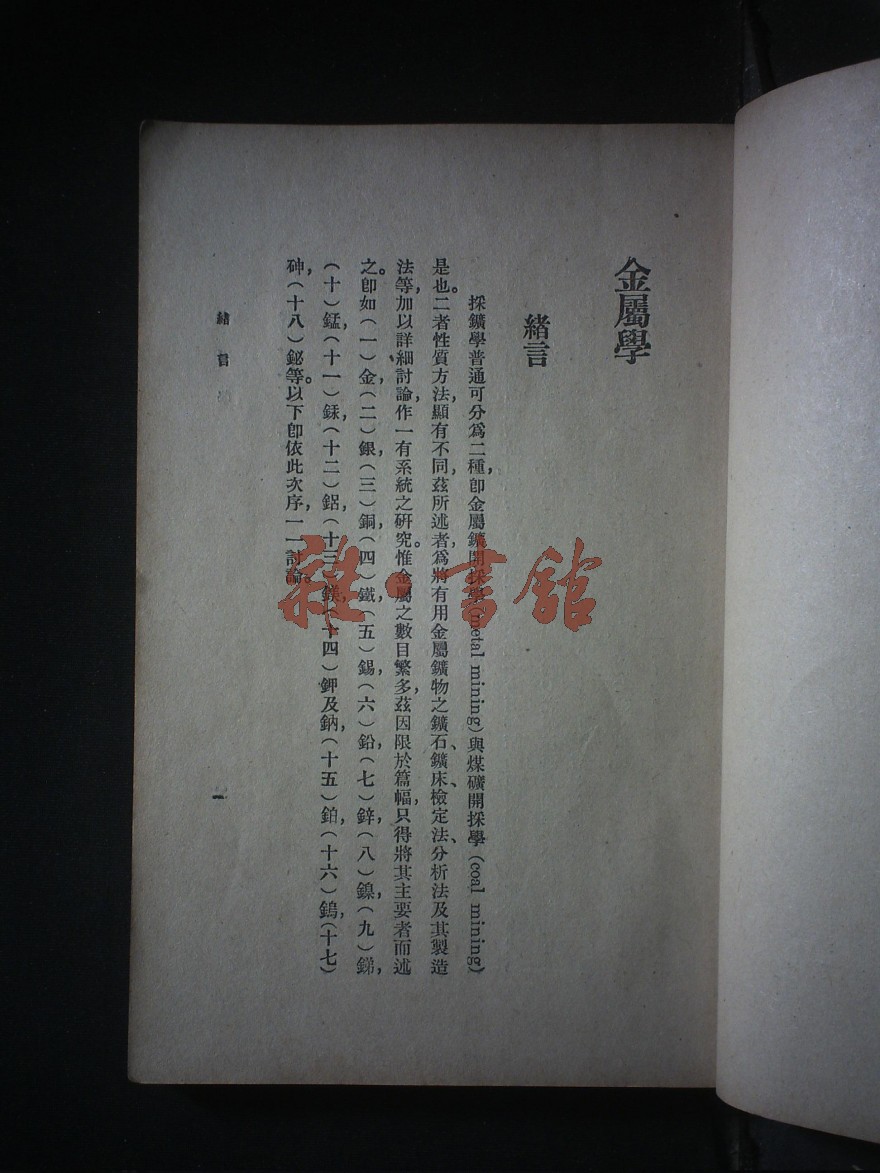 金屬學
緒言
採鑛學普通可分爲二種,卽金屬鑛開採學(metal mining)與煤礦開採學(coal mining)
是也。二者性質方法,顯有不同,茲所述者,爲將有用金屬鑛物之鑛石、鑛床、檢定法、分析法及其製造
法等,加以詳細討論,作一有系統之研究。惟金屬之數目繁多,茲因限於篇幅,只得將其主要者而述
之。卽如(一)金,(二)銀,(三)銅,(四)鐵,(五)錫,(六)鉛,(七)鋅,(八)鎳,(九)銻,
(十)錳,(十一)銾,(十二)鋁,(十三)鎂,(十四)鉀及鈉,(十五)鉑,(十六)鎢,(十七)
砷,(十八)鉍等。以下卽依此次序,一一討論。
緒言
一
雜·書館